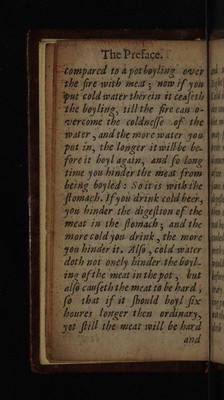 The Preface.
compared to a pot boyling over
the fire with meat; now if you
put cold water therein it ceaseth
the boyling, till the fire can o-
vercome the coldnesse of the
water, and the more water you
put in, the longer it will be be-
fore it boyl again, and so long
time you hinder the meat from
being boyled: So it is with the
stomach. If you drink cold beer,
you hinder the digestion of the
meat in the stomach; and the
more cold you drink, the more
you hinder it. Also, cold water
doth not onely hinder the boyl-
ing of the meat in the pot, but
also causeth the meat to be hard,
so that if it should boyl six
houres longer then ordinary,
yet still the meat will be hard
and